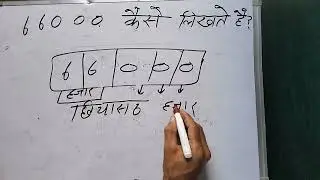 66000 कैसे लिखते है?
6 6 0 0 0
हजार
छियासठ हजार